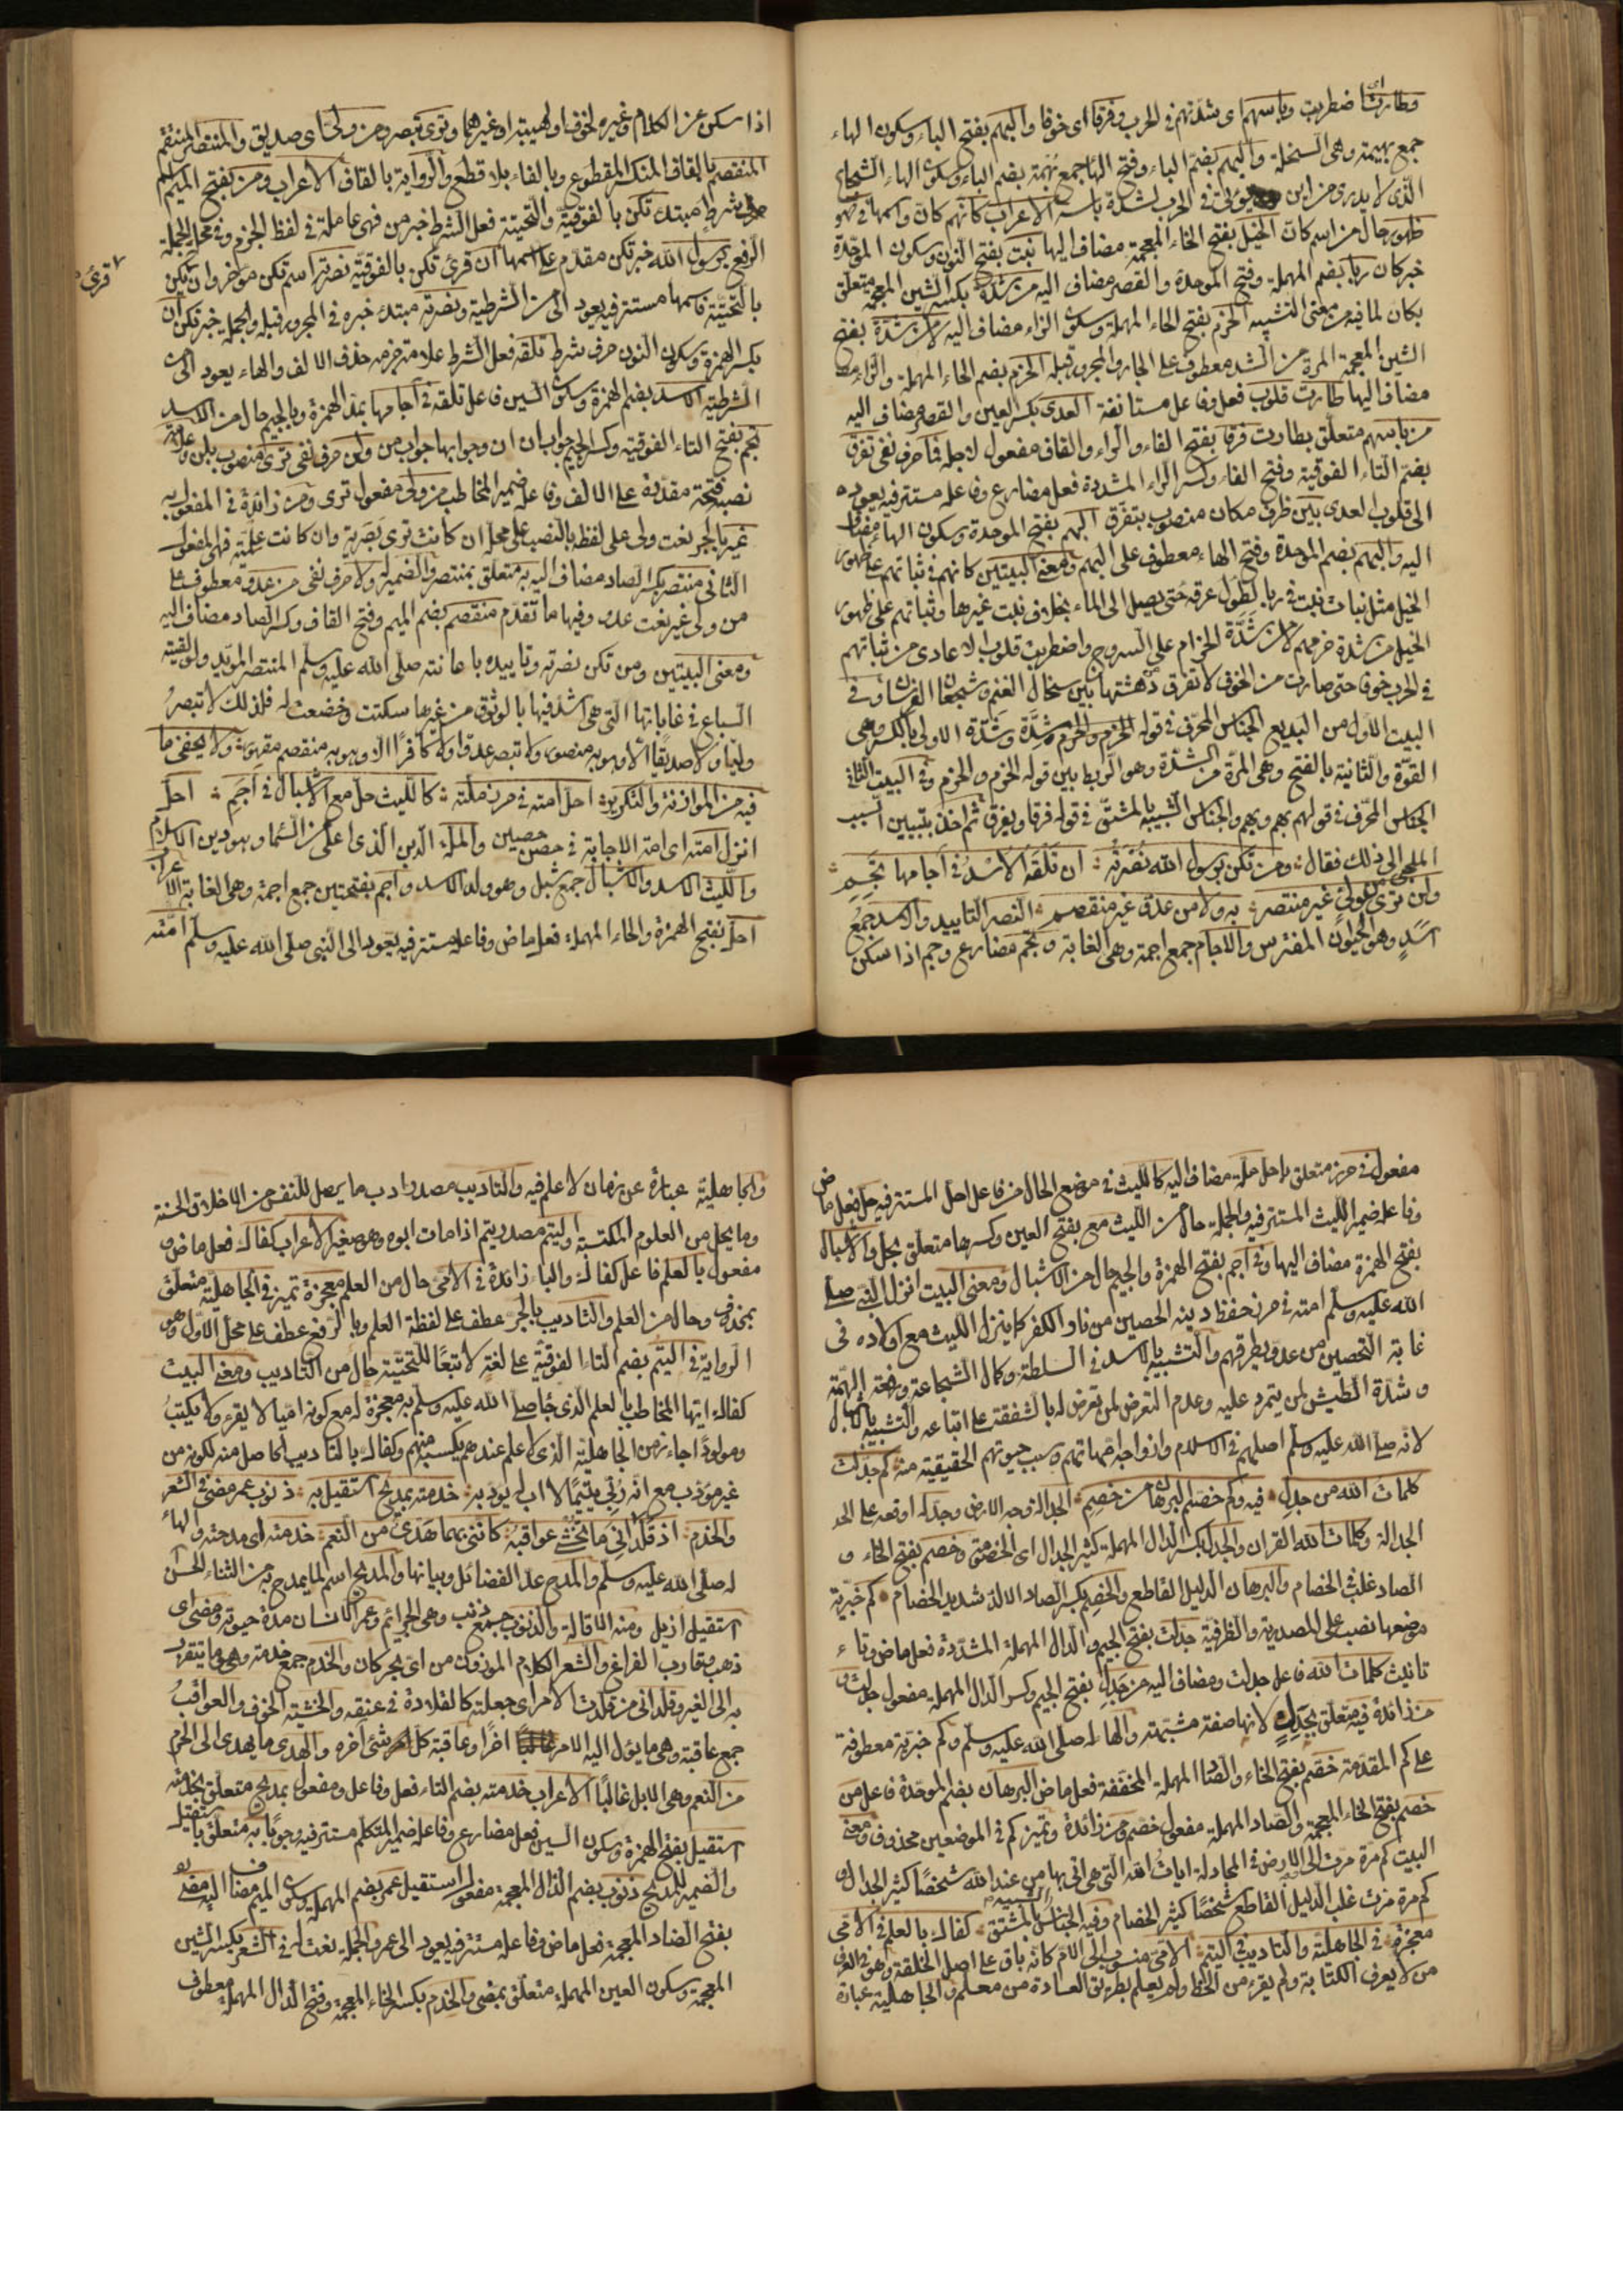 اى
وطارت اضطربت وباسهم اى شدتهم فى الحرب وفرقا اى خوفا والبهم بفتح الباء وسكون الهاء
جمع بهيمة وهى السخلة والبهم بضم الباء وفتح الهاء جمع بهمة بضم الباء وسكون الهاء الشجاع
الذى لا يدرى من اين يؤتى فى الحرب لشدة باسه الاعراب كانهم كان واسمها فى ظهور
ظهور حال من اسم كان الخيل بفتح الخاء المعجمة مضاف اليها نبت بفتح النون وسكون الموحدة
خبر كان ربا بضم المهملة وفتح الموحدة والقصر مضاف اليه من شدة بكسر الشين المعجمة متعلق
بكان لما فيه من معنى التشبيه الحزم بفتح الحاء المهملة وسكون الزاء مضاف اليه لا من شدة بفتح
الشين المعجمة المرة من الشد معطوف على الجار والمجرور قبله الحزم بضم الحاء المهملة والزاء
مضاف اليها طارت قلوب فعل وفاعل مستانفة العدى بكسر العين والقصر مضاف اليه
من باسهم متعلق بطارت فرقا بفتح الفاء والراء والقاف مفعول لاجله فما حرف نفى تفرق
بضم التاء الفوقية وفتح الفاء وكسر الراء المشددة فعل مضارع وفاعله مستتر فيه يعود
الى قلوب العدى بين ظرف مكان منصوب بتفرق البهم بفتح الموحدة وسكون الهاء مضاف
اليه والبهم بضم الموحدة وفتح الهاء معطوف على البهم ومعنى البيتين كانهم فى ثباتهم على ظهور
الخيل مثل نبات نبت فى ربا لطول عرقه حتى يصل الى الماء بخلاف نبت غيرها وثباتهم على ظهور
الخيل من شدة حزمهم لا من شدة الحزام على السروج واضطربت قلوب الاعادى من ثباتهم
فى الحرب خوفا حتى صارت من الخوف لا تفرق دهشتها بين سخال الغنم وشجعان الفرسان وفى
البيت الاول من البديع الجناس المحرف فى قوله الحزم والحزم وشدة وشدة الاولى بالكسر وهى
القوة والثانية بالفتح وهى المرة من الشدة وهو الربط بين قوله الحزم والحزم وفى البيت الثانى
الجناس المحرف فى قولهم بهم وبهم والجناس الشبيه بالمشتق فى قوله فرقا ويفرق ثم اخذ يتبيين السبب
الملجى الى ذلك فقال ومن تكن برسول الله نصرته ان تلقه الاسد فى اجامها تجم
ولن ترى من ولى غير منتصر به ولا من عدو غير منقصم النصر التاييد والاسد جمع
اسد وهو الحيوان المفترس والاجام جمع اجمة وهى الغابة وتجم مضارع وجم اذا سكن
اذا سكن عن الكلام وغيره لخوف او لهيبة او غيرهما وترى تبصر ومن ولى اى صديق والمنتصر المنتقم
المنقصم بالقاف المنكسر المقطوع وبالفاء بلا قطع والرواية بالقاف الاعراب ومن بفتح الميم اسم
شرط مبتدا تكن بالفوقية والتحتية فعل الشرط خبر من فهى عاملة فى لفظ الجزم وفى محل الجملة
الرفع برسول الله خبر تكن مقدم على اسمها ان قرئ تكن بالفوقية نصرته اسم تكن موخر وان يكن
قرئ
بالتحتية فاسمها مستتر فيه يعود الى من الشرطية ونصرته مبتدا خبره فى المجرور قبله والجملة خبر تكن ان
بكسر الهمزة وسكون النون حرف شرط تلقه فعل الشرط علامة جزمه حذف الالف والهاء يعود الى
الشرطية الاسد بضم الهمزة وسكون السين فاعل تلقه فى اجامها بمد الهمزة وبالجيم حال من الاسد
تجم بفتح التاء الفوقية وكسر الجيم جواب ان ان وجوابها جواب من ولن حرف نفى ترى منصوب بلن وعلامة
نصبه فتحة مقدرة على الالف وفاعله ضمير المخاطب من ولى مفعول ترى ومن زائدة فى المفعول به
غير بالجر نعت ولى على لفظه بالنصب على محله ان كانت ترى بصرية وان كانت علمية فهى المفعول
الثانى منتصر بكسر الصاد مضاف اليه به متعلق بمنتصر والضمير له ولا حرف نفى من عدو معطوف على
من ولى غير نعت عدو وفيها ما تقدم منقصم بضم الميم وفتح القاف وكسر الصاد مضاف اليه
ومعنى البيتين ومن تكن نصرته وتاييده باعانته صلى الله عليه وسلم المنتصر المويد ولو لقيته
السباع فى غاباتها التى هى اشد فيها بالوثوق من غيرها سكتت وخضعت له فلذلك لا تبصر
وليا ولا صديقا الا وهو به منصور ولا تبصر عدوا ولا كافرا الا وهو به منقصم مقهور ولا يخفى ما
فيه من الموازنة والتكرير احل امته فى حرز ملته كالليث حل مع الاشبال فى اجم احل
انزل امته اى امة الاجابة فى حصن حصين والملة الدين الذى اعلى من السما وهو دين الاسلام
والليث الاسد والاشبال جمع شبل وهو ولد الاسد واجم بفتحتين جمع اجمة وهى الغابة الاعراب
احل بفتح الهمزة والحاء المهملة فعل ماض وفاعله مستتر فيه يعود الى النبى صلى الله عليه وسلم امته
مفعول فى حرز متعلق باحل ملته مضاف اليه كالليث فى موضع الحال من فاعل احل المستتر فيه حل فعل ماض
وفاعله ضمير الليث المستتر فيه والجملة حال من الليث مع بفتح العين وكسرها متعلق بحل والاشبال
بفتح الهمزة مضاف اليها وفى اجم بفتح الهمزة والجيم حال من الاشبال ومعنى البيت انزل النبى صلى
الله عليه وسلم امته فى حرز حفظ دينه الحصين من ناو الكفر كما ينزل الليث مع اولاده فى
غابة التحصين من عدو يطرقهم والتشبيه بالاسد فى السلطة وكمال الشجاعة ورفعة الهمة
وشدة الطيش لمن يتمرد عليه وعدم التعرض لمن تعرض له بالشفقة على اتباعه والتشبيه بالاشبال
لانه صلى الله عليه وسلم اصلهم فى الاسلام وازواجه امهاتهم وسبب حيوتهم الحقيقية منه كم جدلت
كلمات الله من جدل فيه وكم خصم البرهان من خصم الجدالة وجه الارض وجدله اوقعه على
الجدالة وكلمات الله القران والجدل بكسر الدال المهملة كثير الجدال اى الخصومة وخصم بفتح الخاء و
الصاد غلب فى الخصام والبرهان الدليل القاطع والخصم بكسر الصاد الالد شديد الخصام كم خبرية
موضعها نصب على المصدرية والظرفية جدلت بفتح الجيم والدال المهملة المشددة فعل ماض وتاء
تانيث كلمات الله فاعل جدلت ومضاف اليه من جدل بفتح الجيم وكسر الدال المهملة مفعول جدلت و
من زائدة فيه متعلق بجدل لانها صفة مشبهة والهاء له صلى الله عليه وسلم وكم خبرية معطوفة
على كم المقدمة خصم بفتح الخاء والصاد المهملة المخففة فعل ماض البرهان بضم الموحدة فاعل من
خصم بفتح الخاء المعجمة والصاد المهملة مفعول خصم ومن زائدة وتمييز كم فى الموضعين محذوف ومعنى
البيت كم مرة مرت الى الارض فى المجادلة ايات الله التى هى اتى بها من عند الله شخصا كثير الجدال و
كم مرة مرت غلب الدليل القاطع شخصا كثير الخصام وفيه الجناس الشبيه بالمشتق كفاك بالعلم فى الامى
معجزة فى الجاهلية والتاديب فى اليتم الامى منسوب الى الام كانه باق على اصل الخلقة وهو فى العرف
من لا يعرف الكتابة ولم يقرء من الخط ولم يعلم بطريق العادة من معلم والجاهلية عبارة
والجاهلية عبارة عن زمان لا علم فيه والتاديب مصدر ادب ما يحصل للنفس من الاخلاق الحسنة
وما يحل من العلوم المكتسبة واليتم مصدر يتم اذا مات ابوه وهو صغير الاعراب كفاك فعل ماض و
مفعول بالعلم فاعل كفاك والباء زائدة فى الامى حال من العلم معجزة تمييز فى الجاهلية متعلق
بمحذوف وحال من العلم والتاديب بالجر عطف على لفظة العلم وبالرفع عطف على محل الاول وهو
الرواية فى اليتم بضم التاء الفوقية على لغة لاتبعا للتحتية حال من التاديب ومعنى البيت
كفاك ايها المخاطب بالعلم الذى جا صلى الله عليه وسلم به معجزة له مع كونه اميا لا يقرء ولا يكتب
ومولودا جاء زمن الجاهلية الذى لا علم عندهم يكسب منهم وكفاك بالتاديب الحاصل منه لكونه من
غير مؤدب مع انه ربى يتيما لا اب له يؤدبه خدمته بمديح استقيل به ذنوب عمر مضى فى الشعر
والخدم اذ قلدانى ما تخشى عواقبه كاننى بهما هدى من النعم خدمته اى مدحته والهاء
له صلى الله عليه وسلم والمدح عد الفضائل وبيانها والمديح اسم لما يمدح به من الثناء الحسن
استقيل ازيل ومنه الاقالة والذنوب جمع ذنب وهى الجرائم وعمر الانسان مدة حيوته ومضى اى
ذهب وقارب الفراغ والشعر الكلام الموزون من اى بحر كان والخدم جمع خدمة وهى ما يتقرب
به الى الغير وقلدانى من قلدت الامر اى جعلته كالقلادة فى عنقه والخشية الخوف والعواقب
جمع عاقبة وهى ما يؤل اليه الامر اخرا وعاقبة كل شئ اخره والهدى ما يهدى الى الحرم
من النعم وهى الابل غالبا الاعراب خدمته بضم التاء فعل وفاعل ومفعول بمديح متعلق بخدمته
استقيل بفتح الهمزة وسكون السين فعل مضارع وفاعله ضمير المتكلم مستتر فيه وجوبا به متعلق باستقيل
والضمير للمديح ذنوب بضم الذال المعجمة مفعول استقيل عمر بضم المهملة وسكون الميم مضاف اليه مضى
بفتح الضاد المعجمة فعل ماض وفاعله مستتر فيه يعود الى عمر والجملة نعت له فى الشعر بكسر الشين
المعجمة وسكون العين المهملة متعلق بمضى والخدم بكسر الخاء المعجمة وفتح الدال المهملة معطوف